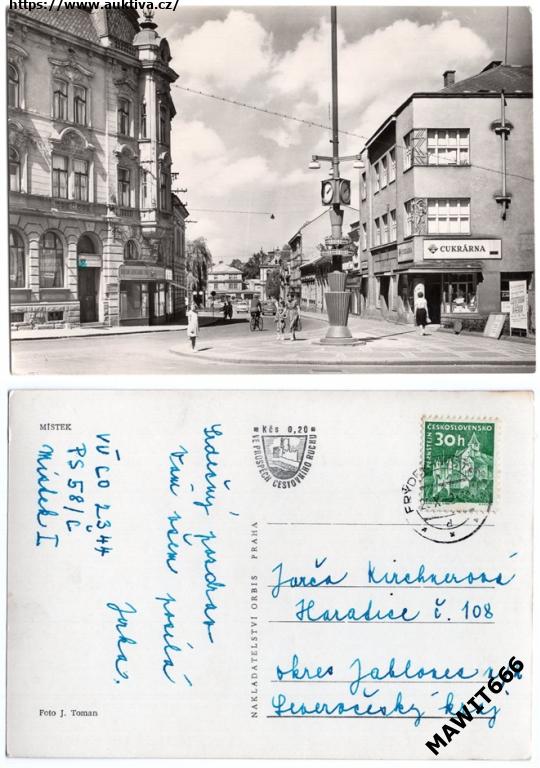 https://www.auktiva.cz/
CUKRÁRNA
MÍSTEK
VÚ CO 2344
PS 58/C
Místek I
Srdečný pozdrav
Vám všem posílá
Jarka.
Foto J. Toman
NAKLADATELSTVÍ ORBIS PRAHA
Kčs 0,20
VE PROSPĚCH CESTOVNÍHO RUCHU
ČESKOSLOVENSKO
30h
PERNŠTEJN
Jarča Kirchnerová
Haratice č. 108
okres Jablonec n/N
Severočeský kraj
MAWIT666